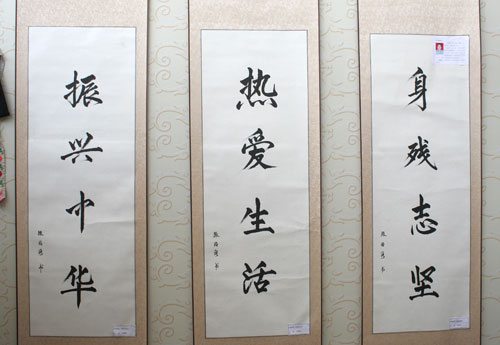 振兴中华
热爱生活
身残志坚